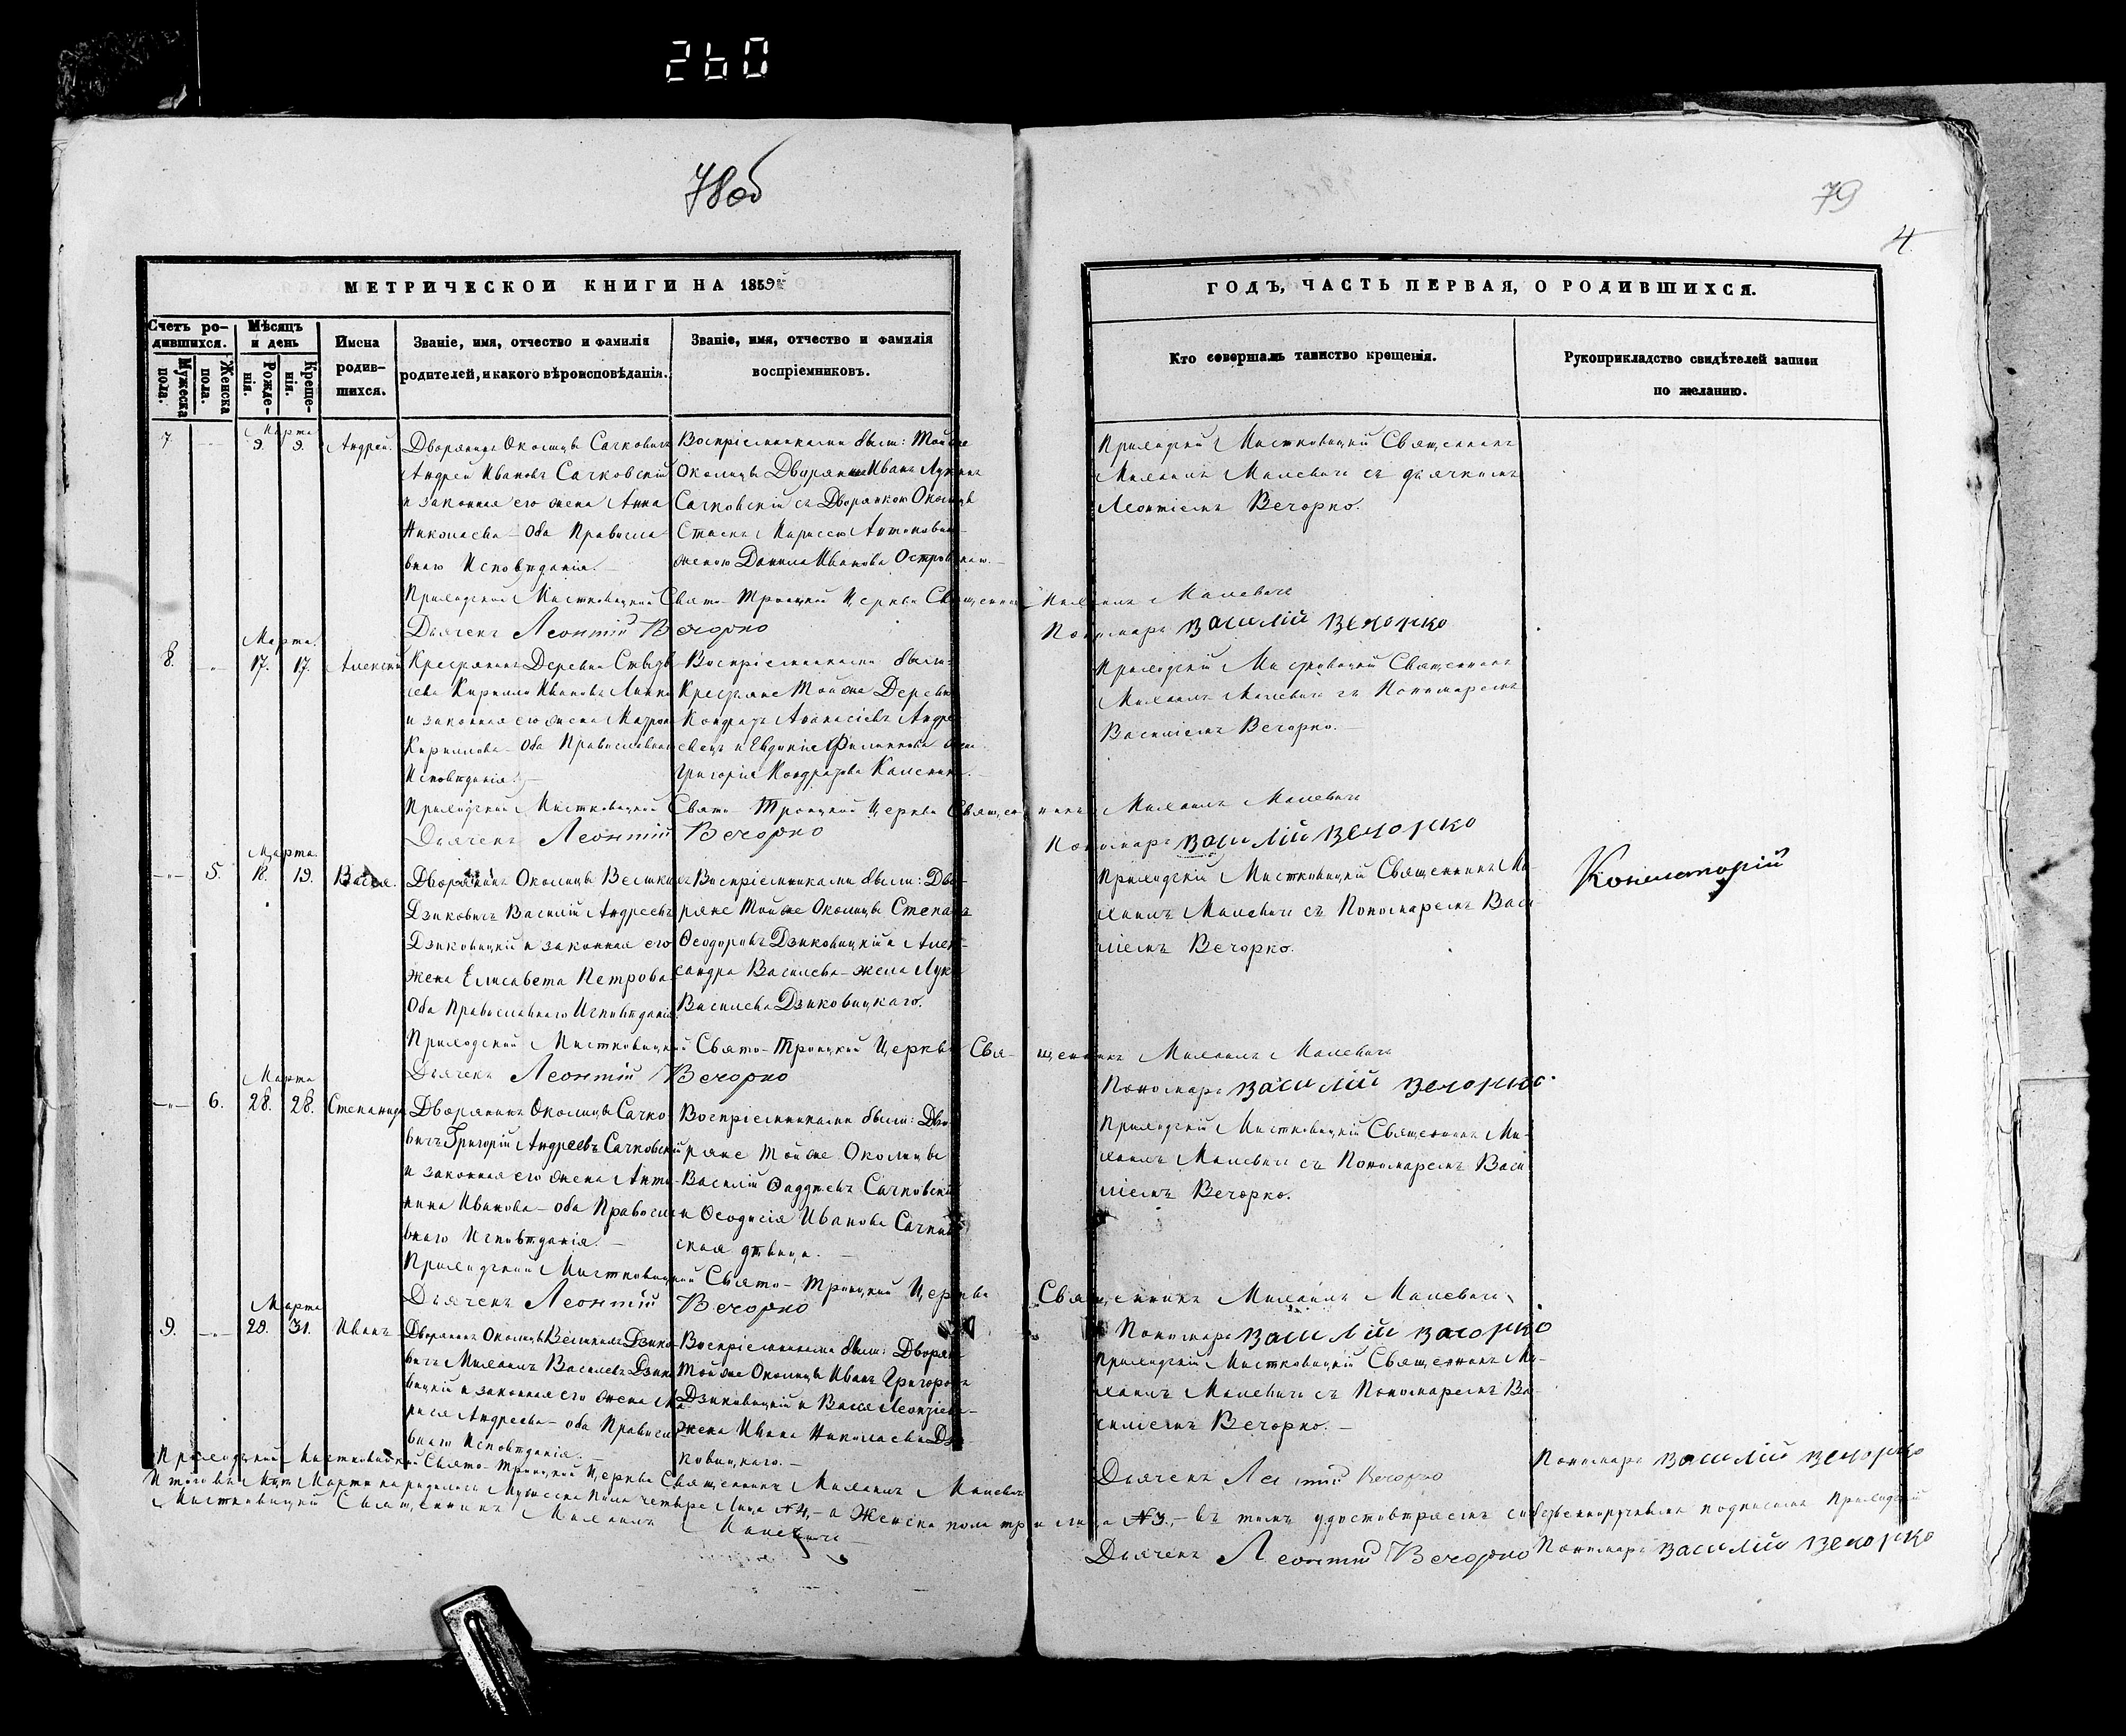 260
78об
79
4
МЕТРИЧЕСКОЙ КНИГИ НА 1859й
ГОДЪ, ЧАСТЬ ПЕРВАЯ, О РОДИВШИХСЯ.
Счетъ ро-
дившихся.
Мужеска
пола.
Женска
пола.
Мѣсяцъ
и день
Рожде-
нія.
Креще-
нія.
Имена
родив-
шихся.
Званіе, имя, отчество и фамилія
родителей, и какого вѣроисповѣданія.
Званіе, имя, отчество и фамилія
воспріемниковъ.
Кто совершалъ таинство крещенія.
Рукоприкладство свидѣтелей записи
по желанію.
Марта
7. 9. 9. Андрей.
Дворянинъ Околицы Сачковичъ
Андрей Ивановъ Сачковскій
и законная его жена Анна
Николаева – Оба Правосла
внаго Исповѣданія. –
Воспріемниками были: Той же
Околицы Дворянинъ Иванъ Лукинъ
Сачковскій съ Дворянкою Околицы
женою Данила Иванова
Приходскій Мистковицкій Священникъ
Михаилъ Малевичъ съ дьячкомъ
Леонтіемъ Вечорко.
Приходскій Мистковицкой Свято-Троицкой Церкви Священникъ Михаилъ Малевичъ
Дьячекъ Леонтій Вечорко
Пономарь Василій Вечорко
Марта.
8. 17. 17. Алексій
Крестьянинъ Деревни
Кирилло Ивановъ
и законная его жена
Кириллова – Оба Православнаго
Исповѣданія. –
Воспріемниками были:
Крестьяне Той же Деревни
Кондратъ Аѳанасіевъ Андре
евецъ и Евдокія Филиппова жена
Григорія Кондратова
Приходскій Мистковицкій Священникъ
Михаилъ Малевичъ съ Пономаремъ
Василіемъ Вечорко. –
Приходскій Мистковицкой Свято-Троицкой Церкви Священникъ Михаилъ Малевичъ
Дьячекъ Леонтій Вечорко
Пономарь Василій Вечорко
Марта.
5. 18. 19. Васса.
Дворянинъ Околицы Велики
Дзиковичъ Василій Андреевъ
Дзиковицкій и законная его
жена Елисавета Петрова
Оба Православнаго Исповѣданія
Воспріемниками были: Дво-
ряне Той же Околицы Степанъ
Ѳеодоровъ Дзиковицкій и Алек-
сандра Василева – жена Луки
Василева Дзиковицкаго.
Приходскій Мистковицкій Священникъ Ми
хаилъ Малевичъ съ Пономаремъ Васи-
ліемъ Вечорко.
Консисторій
Приходскій Мистковицкой Свято-Троицкой Церкви Священникъ Михаилъ Малевичъ
Дьячекъ Леонтій Вечорко
Пономарь Василій Вечорко.
Марта
6. 28. 28. Степанида
Дворянинъ Околицы Сачко
вичъ Григорій Андреевъ Сачковскій
и законная его жена Анто
нина Иванова – оба Правосла
внаго Исповѣданія. –
Воспріемниками были: Дво-
ряне Той же Околицы
Василій Ѳаддеевъ Сачковскій
и Ѳеодосія Иванова Сачков
ская дѣвица. –
Приходскій Мистковицкій Священникъ Ми-
хаилъ Малевичъ съ Пономаремъ Васи
ліемъ Вечорко.
Приходскій Мистковицкой Свято-Троицкой Церкви Священникъ Михаилъ Малевичъ
Дьячекъ Леонтій Вечорко
Пономарь Василій Вечорко
Марта
9. 29. 31. Иванъ
Дворянинъ Околицы Великихъ Дзико
вичъ Михаилъ Василевъ Дзико
вицкій и законная его жена Ма
рія Андреева – оба Правосла
внаго Исповѣданія. –
Воспріемниками были: Дворяне
Той же Околицы Иванъ Григоровъ
Дзиковицкій и Васса Леонтіева –
жена Ивана Николаева Дзи
ковицкаго. –
Приходскій Мистковицкій Священникъ Ми-
хаилъ Малевичъ съ Пономаремъ Ва-
силіемъ Вечорко. –
Приходскій Мистковицкой Свято-Троицкой Церкви Священникъ Михаилъ Малевичъ
Дьячекъ Леонтій Вечорко
Пономарь Василій Вечорко
Итого въ Мцѣ Мартѣ народилось Мужеска пола четыре лица № 4, – а Женска пола три лица № 3. – въ томъ удостовѣряемъ собственноручнымъ подписомъ Приходскій
Мистковицкій Священникъ Михаилъ Малевичъ
Дьячекъ Леонтій Вечорко
Пономарь Василій Вечорко